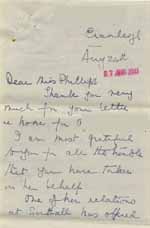 Cranleigh
Aug 20th
Dear Miss Phillips
Thank you very
much for your letter
I am most grateful
to you for all the trouble
that you have taken
on her behalf
One of her relations
at Southall has offered